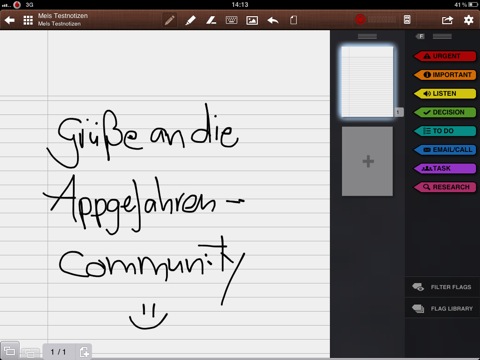 3G
14:13
41 %
Meis Testnotizen
Meis Testnotizen
Grüße an die
Appgefahren-
Community
1
URGENT
IMPORTANT
LISTEN
DECISION
TO DO
EMAIL/CALL
TASK
RESEARCH
FILTER FLAGS
FLAG LIBRARY
1 / 1